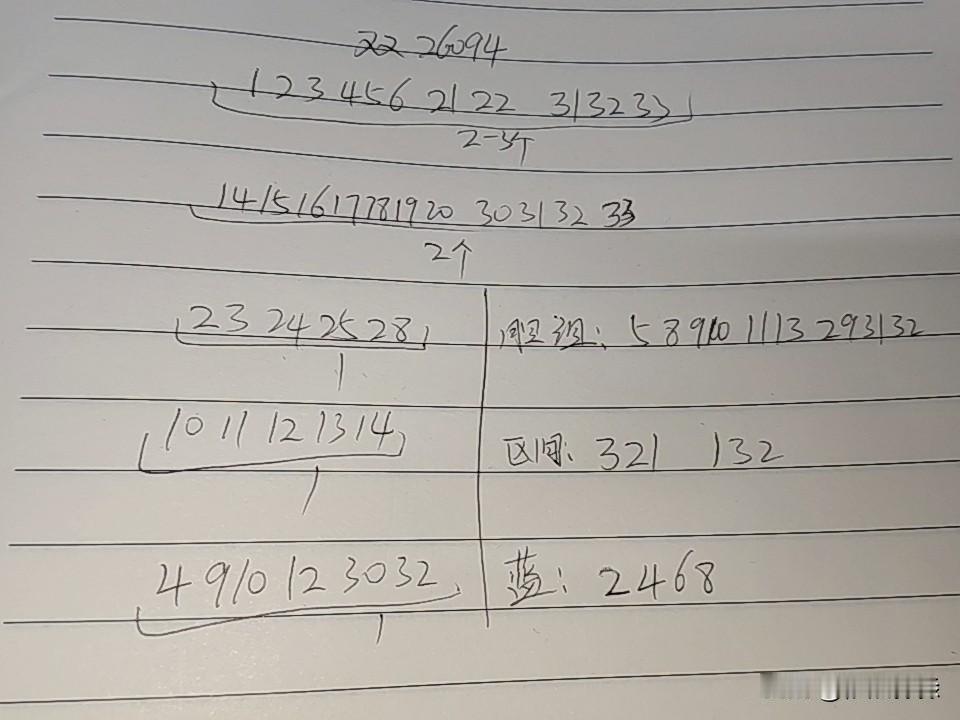 22 26094
1 2 3 4 5 6 21 22 31 32 33
2-3个
14 15 16 17 18 19 20 30 31 32 33
2个
23 24 25 28
1
10 11 12 13 14
1
4 9 10 12 30 32
1
胆组: 5 8 9 10 11 13 29 31 32
区间: 321 132
蓝: 2 4 6 8